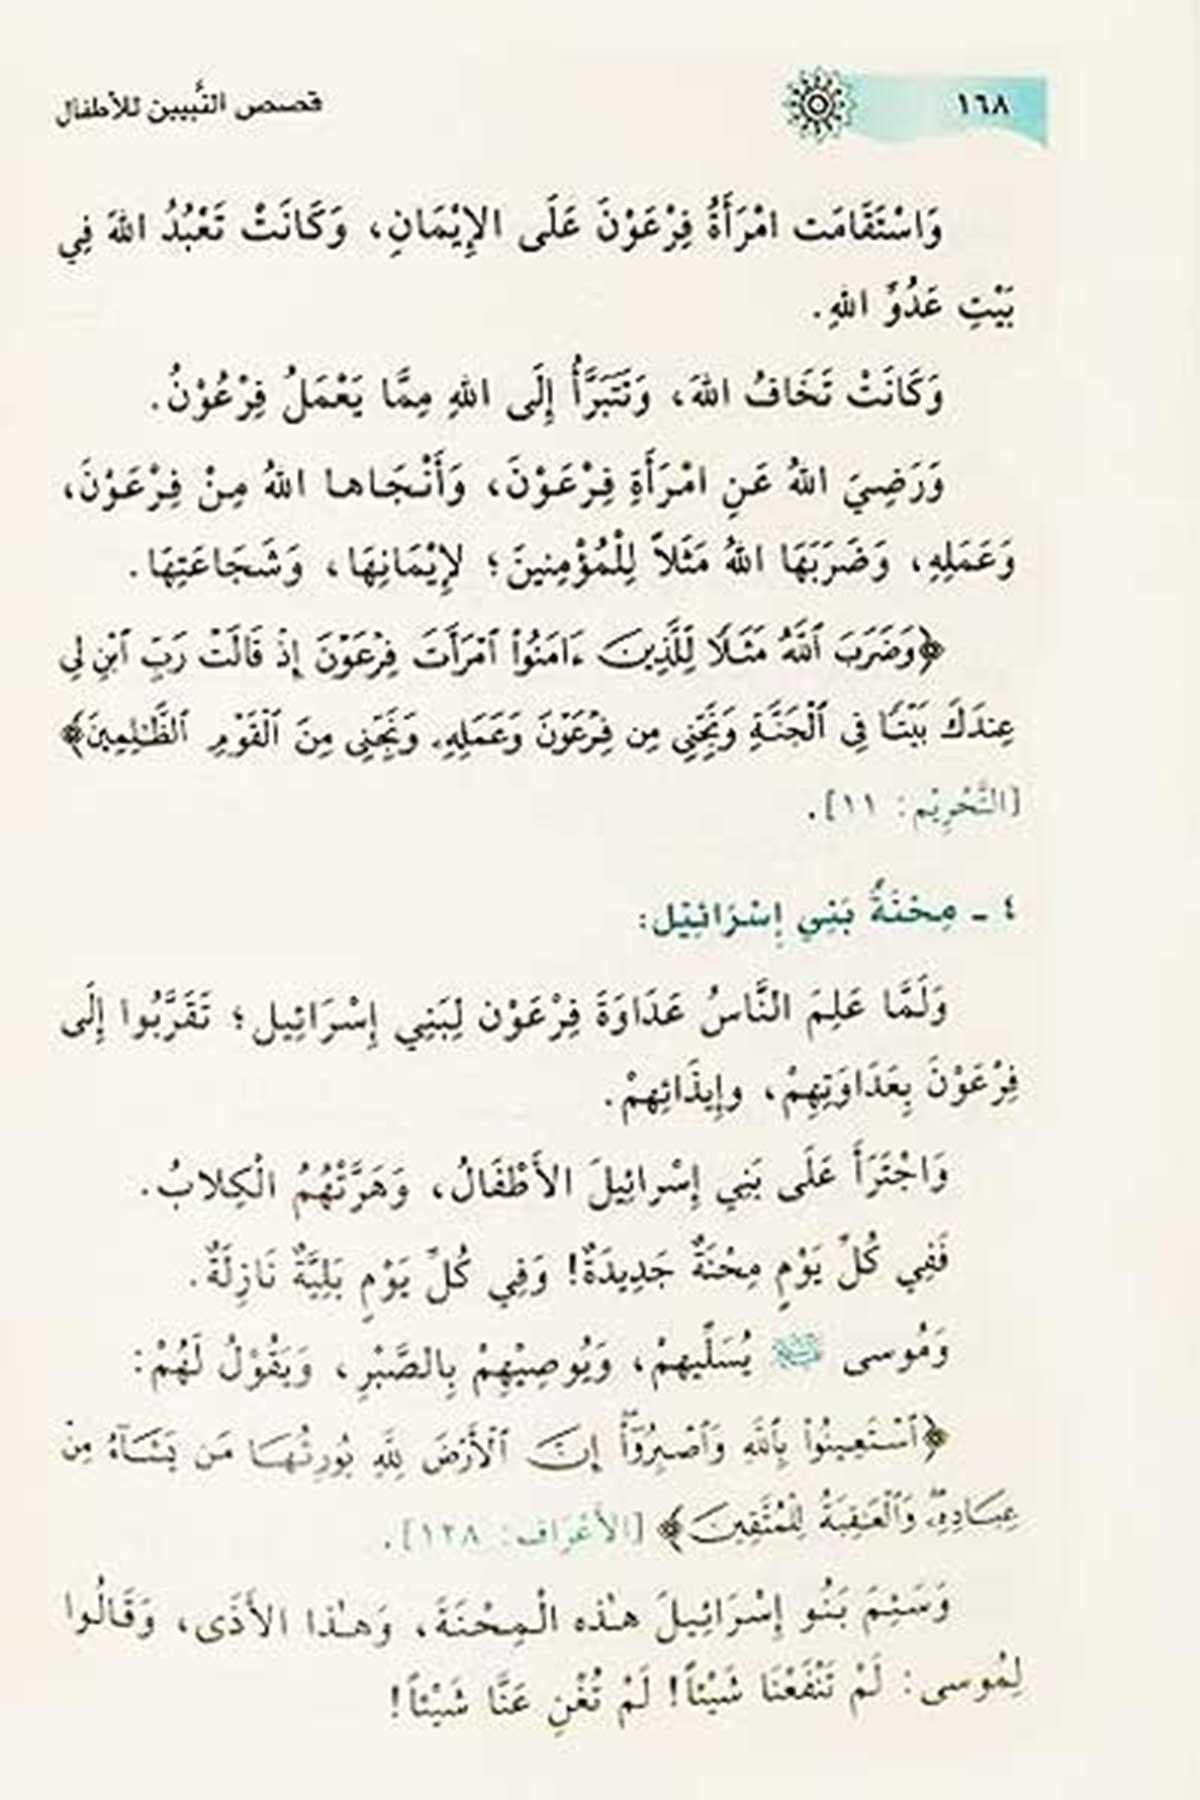 ١٦٨
قصص النَّبيين للأطفال
وَاسْتَقَامَت امْرَأَةُ فِرْعَوْنَ عَلَى الإِيْمَانِ، وَكَانَتْ تَعْبُدُ اللهَ فِي
بَيْتِ عَدُوِّ اللهِ.
وَكَانَتْ تَخَافُ اللهَ، وَتَتَبَرَّأُ إِلَى اللهِ مِمَّا يَعْمَلُ فِرْعُوْنُ.
وَرَضِيَ اللهُ عَنِ امْرَأَةِ فِرْعَوْنَ، وَأَنْجَاها اللهُ مِنْ فِرْعَوْنَ،
وَعَمَلِهِ، وَضَرَبَهَا اللهُ مَثَلاً لِلْمُؤْمِنِينَ؛ لإِيْمَانِهَا، وَشَجَاعَتِهَا.
﴿وَضَرَبَ ٱللَّهُ مَثَلًا لِلَّذِينَ ءَامَنُوا۟ ٱمْرَأَتَ فِرْعَوْنَ إِذْ قَالَتْ رَبِّ ٱبْنِ لِي
عِندَكَ بَيْتًا فِي ٱلْجَنَّةِ وَنَجِّنِي مِن فِرْعَوْنَ وَعَمَلِهِۦ وَنَجِّنِي مِنَ ٱلْقَوْمِ ٱلظَّٰلِمِينَ﴾
[التَّحْرِيْم: ١١].
٤ ـ مِحْنَةُ بَنِي إِسْرَائِيْل:
وَلَمَّا عَلِمَ النَّاسُ عَدَاوَةَ فِرْعَوْن لِبَنِي إِسْرَائِيل؛ تَقَرَّبُوا إِلَى
فِرْعَوْنَ بِعَدَاوَتِهِمْ، وإِيذَائِهِمْ.
وَاجْتَرَأَ عَلَى بَنِي إِسْرائِيلَ الأَطْفَالُ، وَهَرَّتْهُمُ الْكِلابُ.
فَفِي كُلِّ يَوْمٍ مِحْنَةٌ جَدِيدَةٌ! وَفِي كُلِّ يَوْمٍ بَلِيَّةٌ نَازِلَةٌ.
وَمُوسى يُسَلِّيهِمْ، وَيُوصِيْهِمْ بِالصَّبْرِ، وَيَقُوْلُ لَهُمْ:
﴿ٱسْتَعِينُوا۟ بِٱللَّهِ وَٱصْبِرُوٓا۟ إِنَّ ٱلْأَرْضَ لِلَّهِ يُورِثُهَا مَن يَشَآءُ مِنْ
عِبَادِهِۦ وَٱلْعَٰقِبَةُ لِلْمُتَّقِينَ﴾ [الأَعْرَاف: ١٢٨].
وَسَئِمَ بَنُو إِسْرَائِيلَ هٰذه الْمِحْنَةَ، وَهٰذا الأَذَى، وَقَالُوا
لِمُوسى: لَمْ تَنْفَعْنَا شَيْئاً! لَمْ تُغْنِ عَنَّا شَيْئاً!